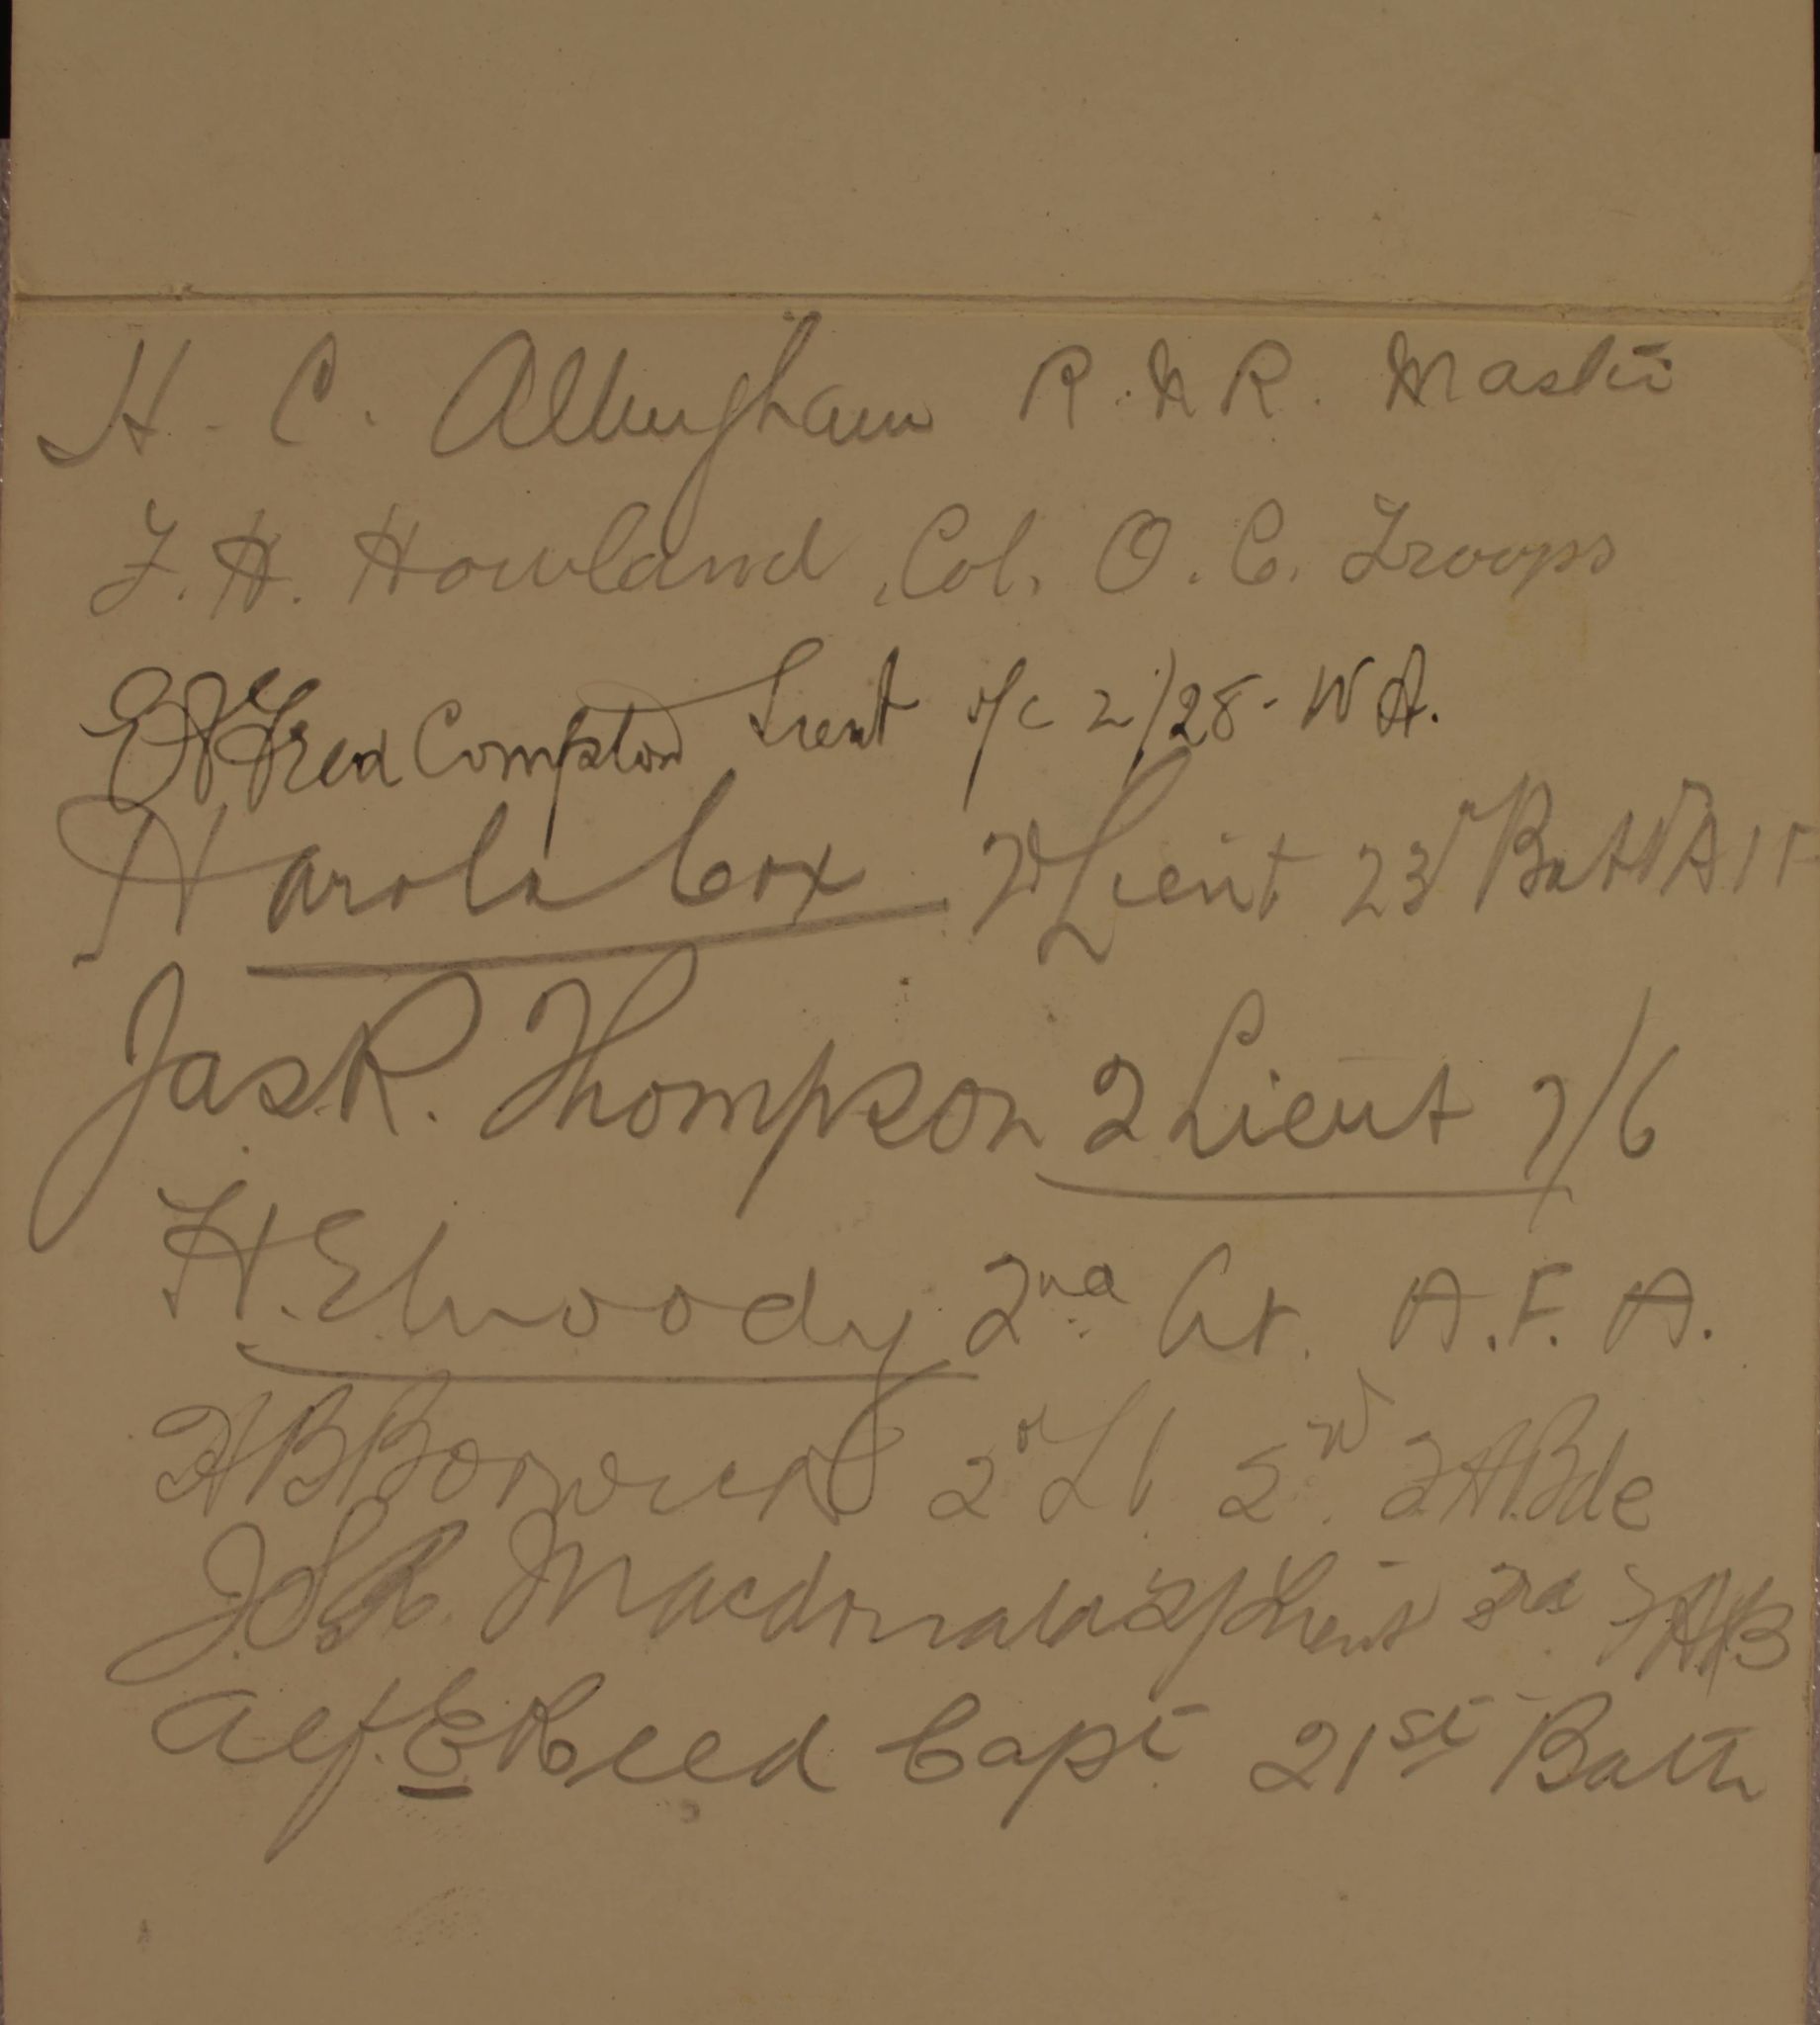 H. C. Allingham R.N.R. Master
F. H. Howland, Col. O. C. Troops
Fred Compton Lieut o/c 2/28 - W A.
Harold Cox 2d Lieut 23d Battn A I F
Jas R. Thompson 2 Lieut 7/6
H. Elwoody 2nd Lt. A. F. A.
2d Lt. 2nd F.A.Bde
Macdonald 2/Lieut 3rd F.A.B
Alf. E Reed Capt 21st Battn